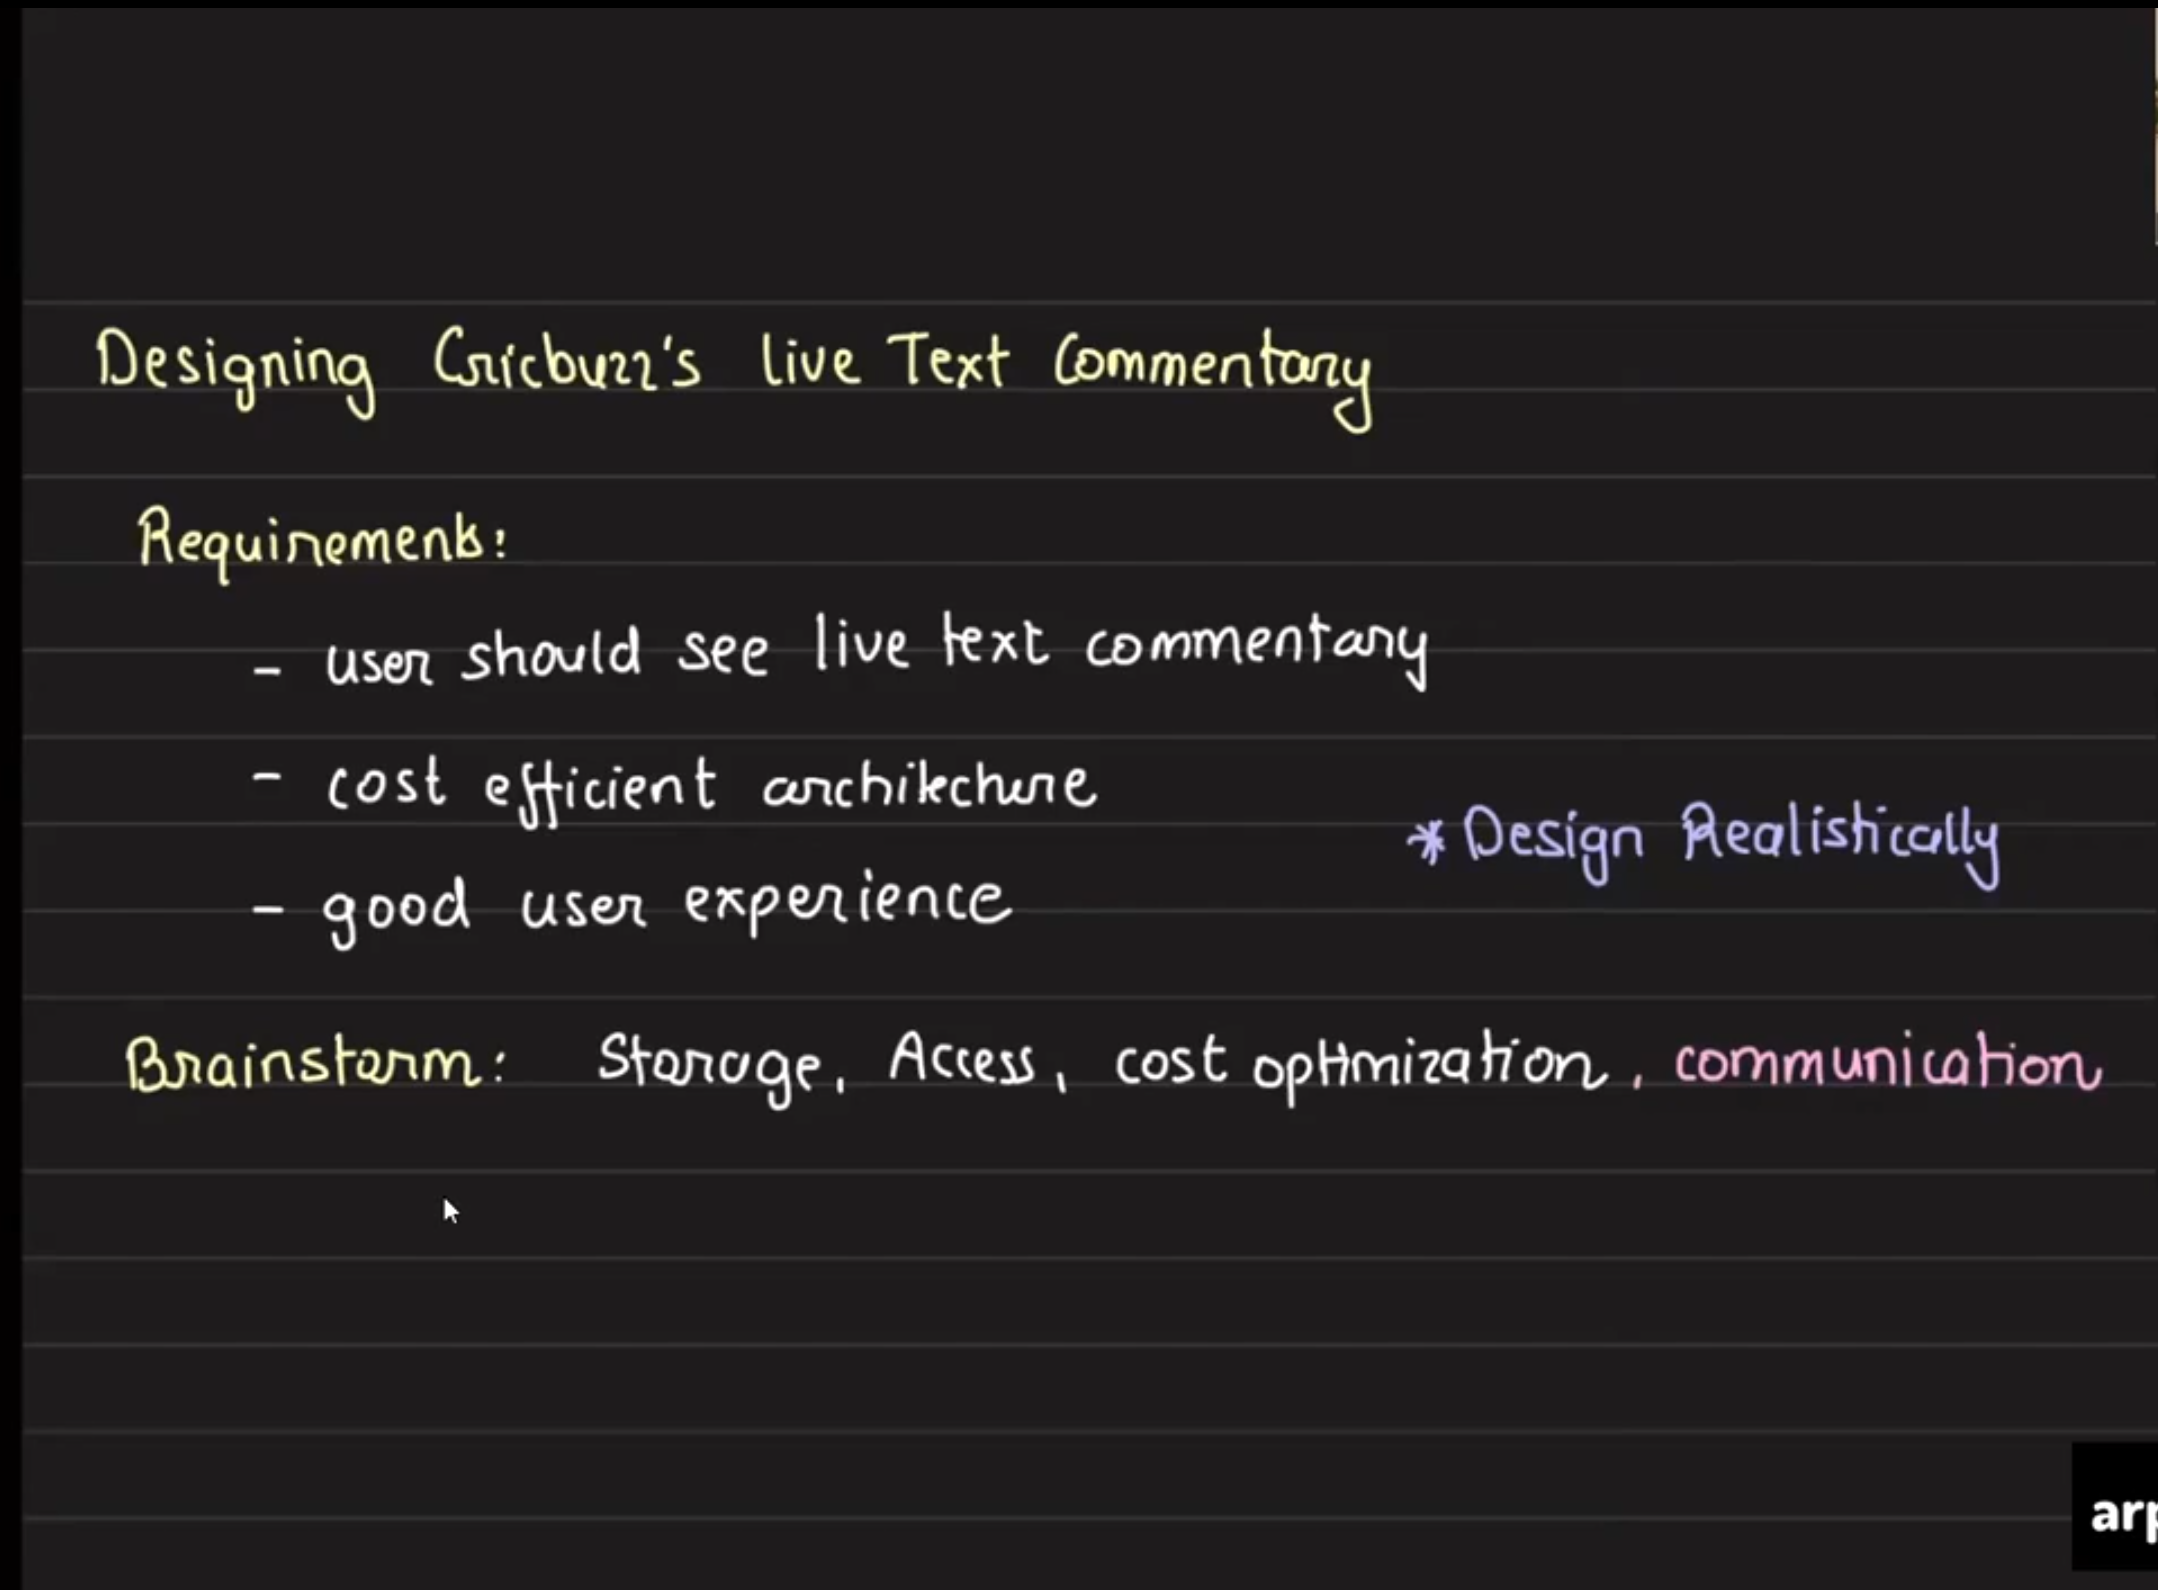 Designing Cricbuzz's live Text Commentary
Requirements:
- user should see live text commentary
- cost efficient architecture
* Design Realistically
- good user experience
Brainstorm: Storage, Access, cost optimization, communication
arp